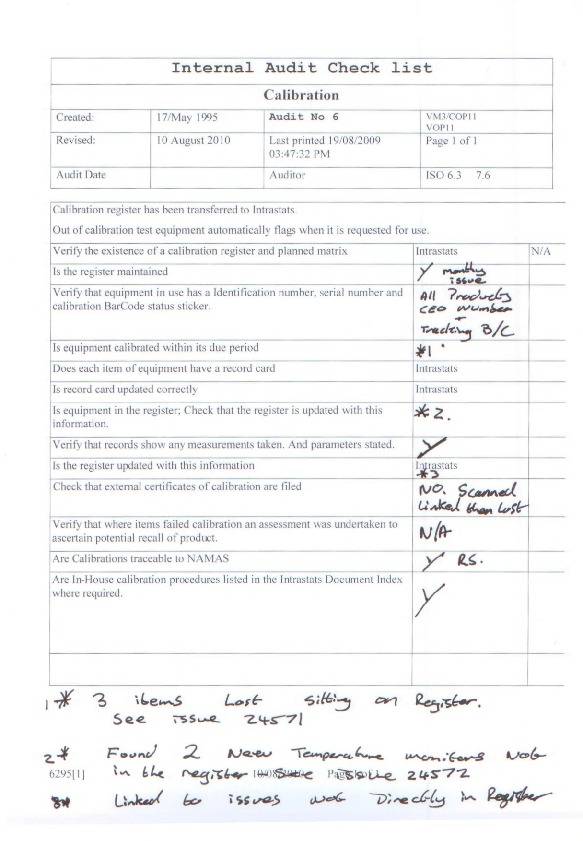 Internal Audit Check list
Calibration
Created: 17/May 1995 Audit No 6 VM3/COP11
VOP11
Revised: 10 August 2010 Last printed 19/08/2009 Page 1 of 1
03:47:32 PM
Audit Date Auditor ISO 6.3 7.6
Calibration register has been transferred to Intrastats
Out of calibration test equipment automatically flags when it is requested for use.
Verify the existence of a calibration register and planned matrix Intrastats N/A
Is the register maintained Y monthly
issue
Verify that equipment in use has a Identification number, serial number and All Products
calibration BarCode status sticker. CEO Number
+
Tracking B/C
Is equipment calibrated within its due period *1
Does each item of equipment have a record card Intrastats
Is record card updated correctly Intrastats
Is equipment in the register; Check that the register is updated with this *2.
information.
Verify that records show any measurements taken. And parameters stated. Y
Is the register updated with this information Intrastats
*3
Check that external certificates of calibration are filed NO. Scanned
Linked then Lost
Verify that where items failed calibration an assessment was undertaken to N/A
ascertain potential recall of product.
Are Calibrations traceable to NAMAS Y RS.
Are In-House calibration procedures listed in the Intrastats Document Index Y
where required.
1* 3 items Lost sitting on Register.
See issue 24571
2* Found 2 New Temperature monitors Not
6295[1] in the register See issue 24572
3* Linked to issues not Directly in Register